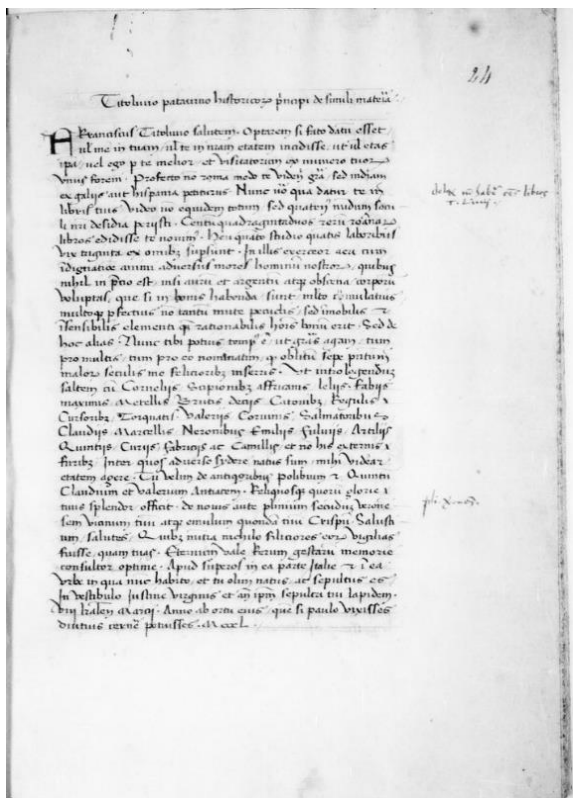 24
Titolivio patavino historicorz principi de simili materia
FRanciscus Titolivio salutem. Optarem si fato datu esset
ul me in tuam, ul te in nram etatem incidisse, ut ul etas
ipa, uel ego p te melior et visitatorum ex numero tuorz
vnus forem. Profecto no roma modo te viden gra, sed indiam
ex galiis aut hispania petiturus. Nunc uo qua datur te in
libris tuis video no equidem totum sed quaten nudum secu
li nri desidia periisti. Centu quadragintaduos rerz romanorz
libros edidisse te nouim. Heu quato studio quatis laboribus
vix triginta ex omibz supsunt.
indignatioe animi adversus mores hominu nostrorz, quibus
nihil in pcio est, nisi auru et argentu atqz obscena corporu
voluptas, que si in bonis habenda sunt, mlto cumulatius
multoqz pfectius no tantu mute pecudis, sed imobilis et
isensibilis elementi qz rationabilis hois bonu erit. Sed de
hoc alias. Nunc tibi potius temp e ut gras agam, tum
pro multis, tum pro eo nominatim, q oblitu sepe pntium
malorz seculis me felicioribz inseris. Ut int legenduz
saltem cu Cornelis Scipionibz affricanis lelijs fabijs
maximis Metellis Brutis decijs Catonibz Regulis
Cursoribz Torquatis Valerijs Corvinis Salinatoribus
Claudijs Marcellis Neronibus Emilijs fulvijs Atilijs
Quintijs Curijs fabricijs ac Camillis, et no his extremis
furibz Inter quos adverso sydere natus sum mihi videar
etatem agere.
Claudium et Valerium Antiatem. Reliquosqz quoru glorie
tuus splendor officit. de novis aute plinium secuduz verone
sem vicinum tuu atqz emulum quonda tuu Crispu Salusti
um, salutes, Quibz nutia nichilo feliciores eorz vigilias
fuisse, quam tuas. Eternum vale Rerum gestaru memorie
consultor optime. Apud superos in ea parte Italie et i ea
vrbe in qua nuc habito, et tu olim natus ac sepultus es
In vestibulo Justine virginis et an ipm sepulcri tui lapidem.
viij kalen Marcij. Anno ab ortu eius, que si paulo vixisses
diutius cerne potuisses. Mcccl.